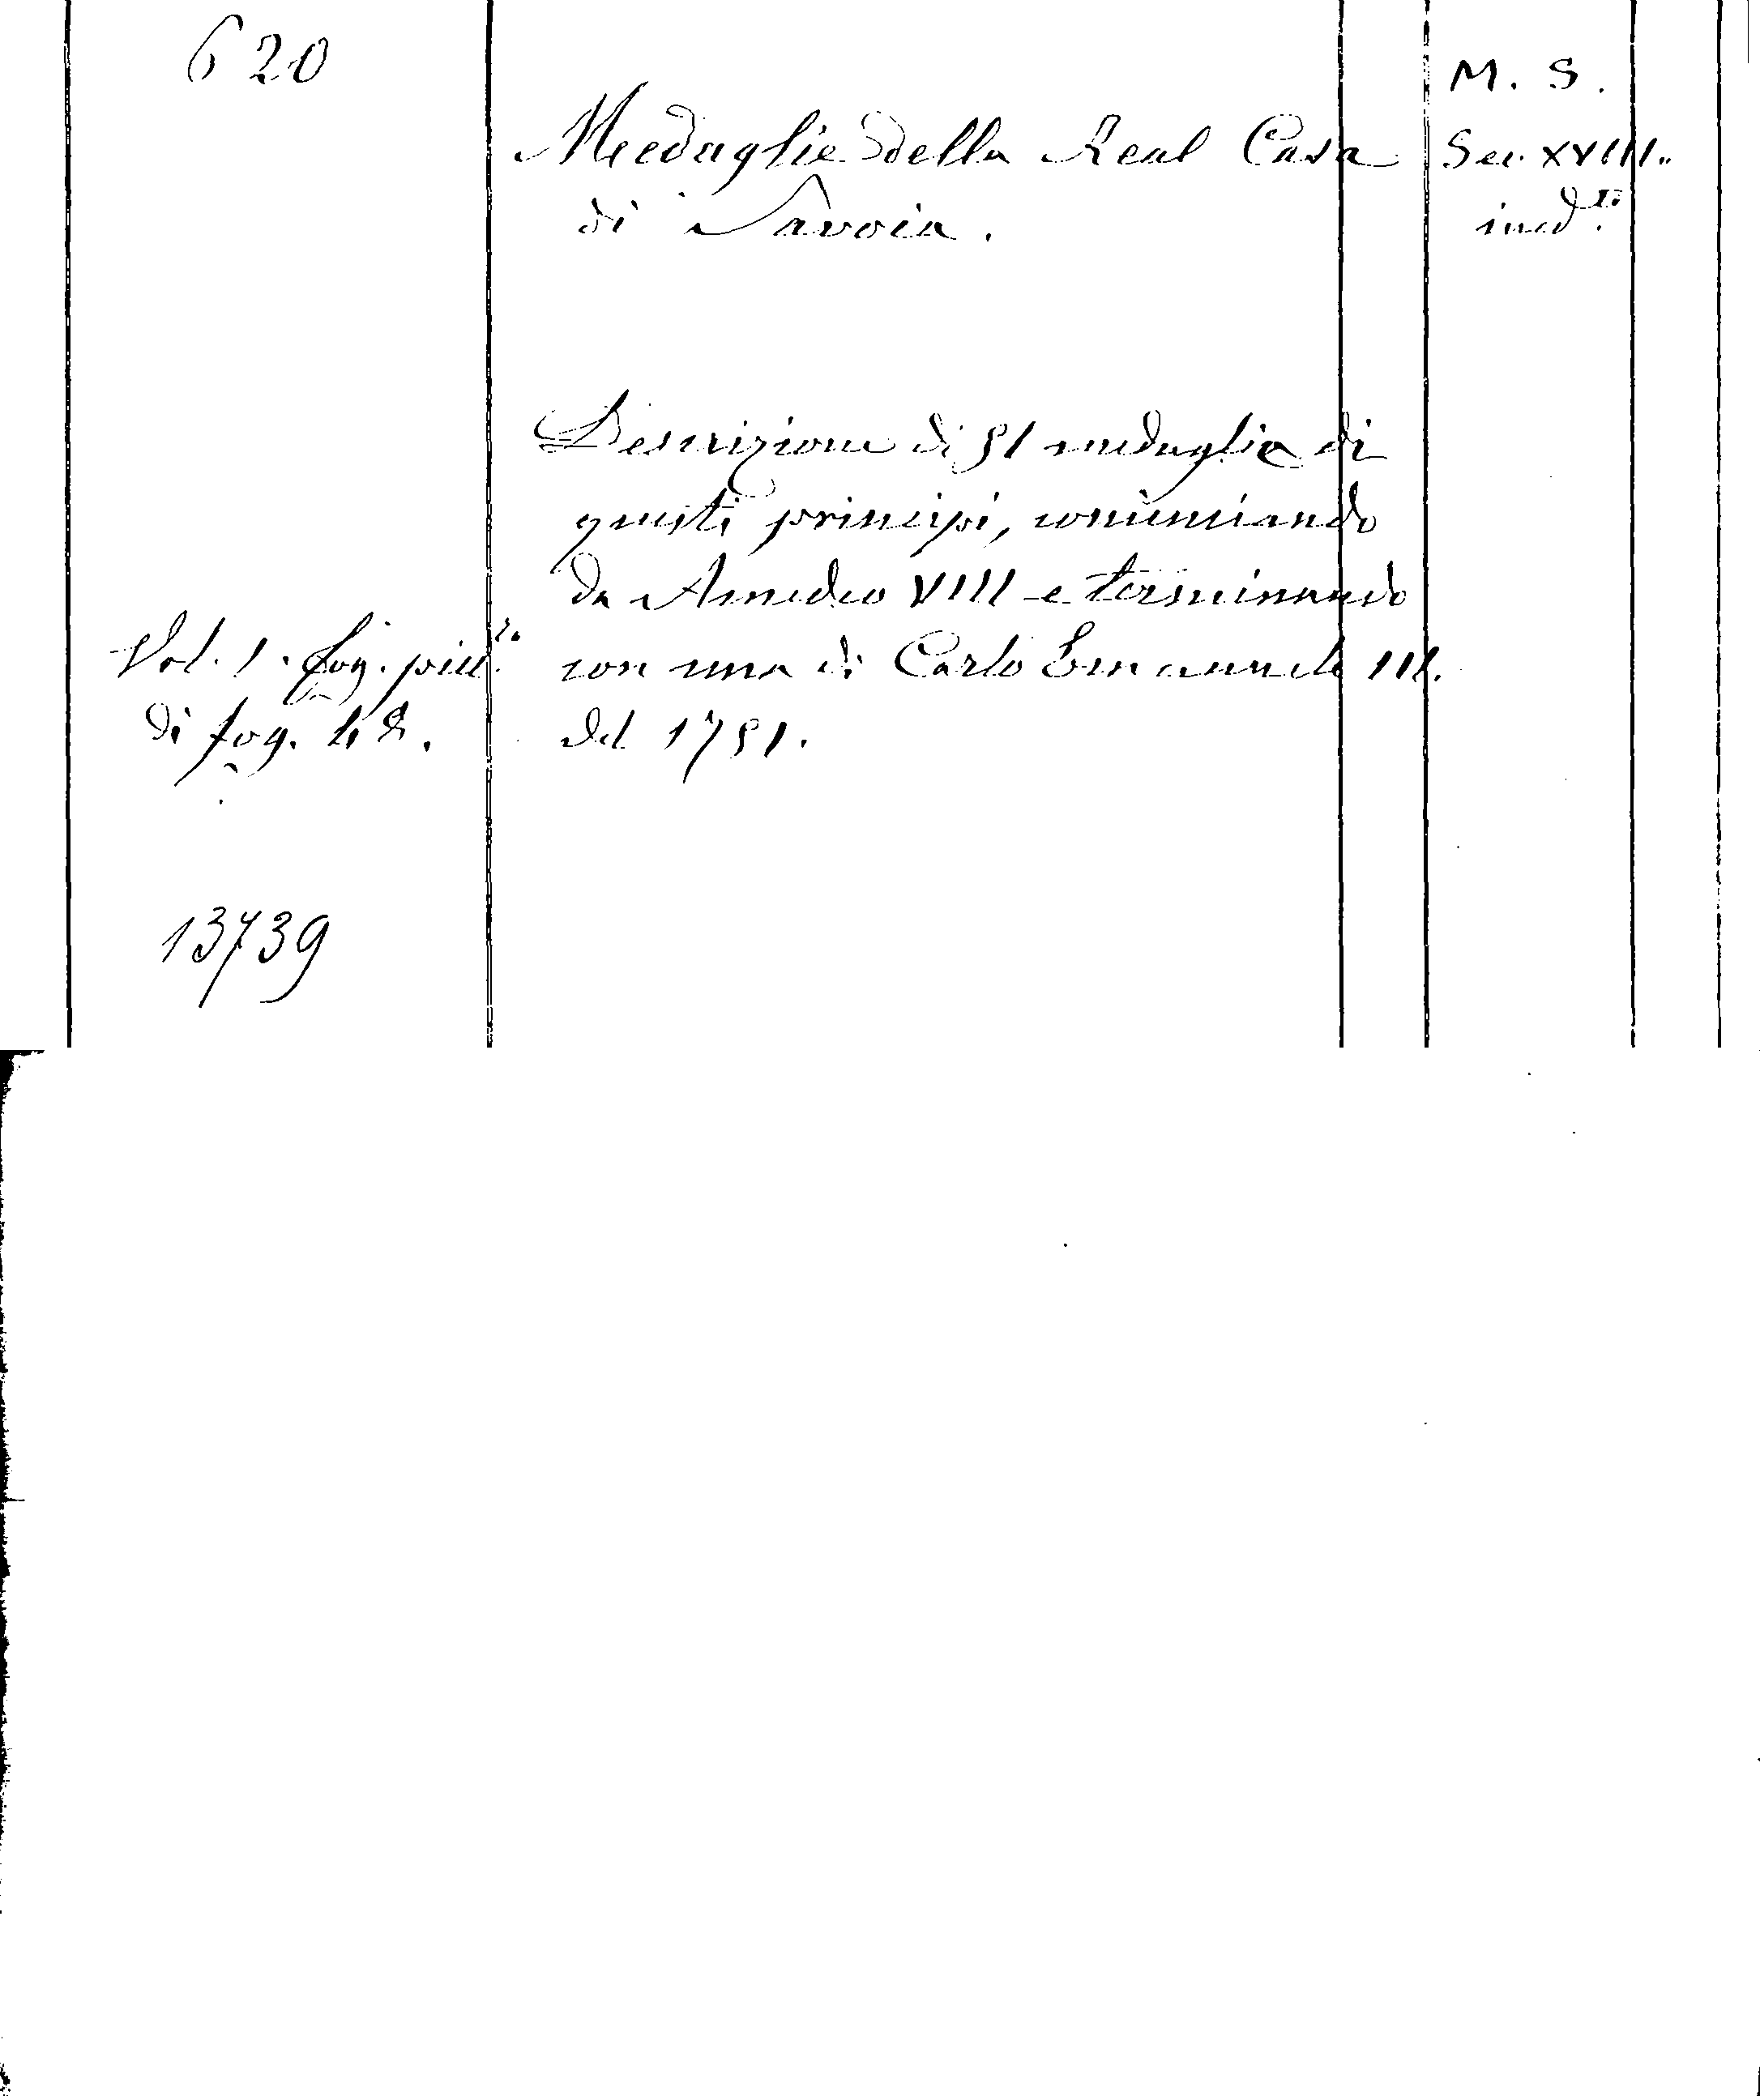 620
M. S.
Medaglie della Real Casa
Sec. XVIII..
di Savoia.
ined.to
Descrizione di 51 medaglie di
questi principi, cominciando
da Amedeo VIII e terminando
Vol. 1. fog. picc.lo
con una di Carlo Emanuele III.
di fog.
del 1751.
13739